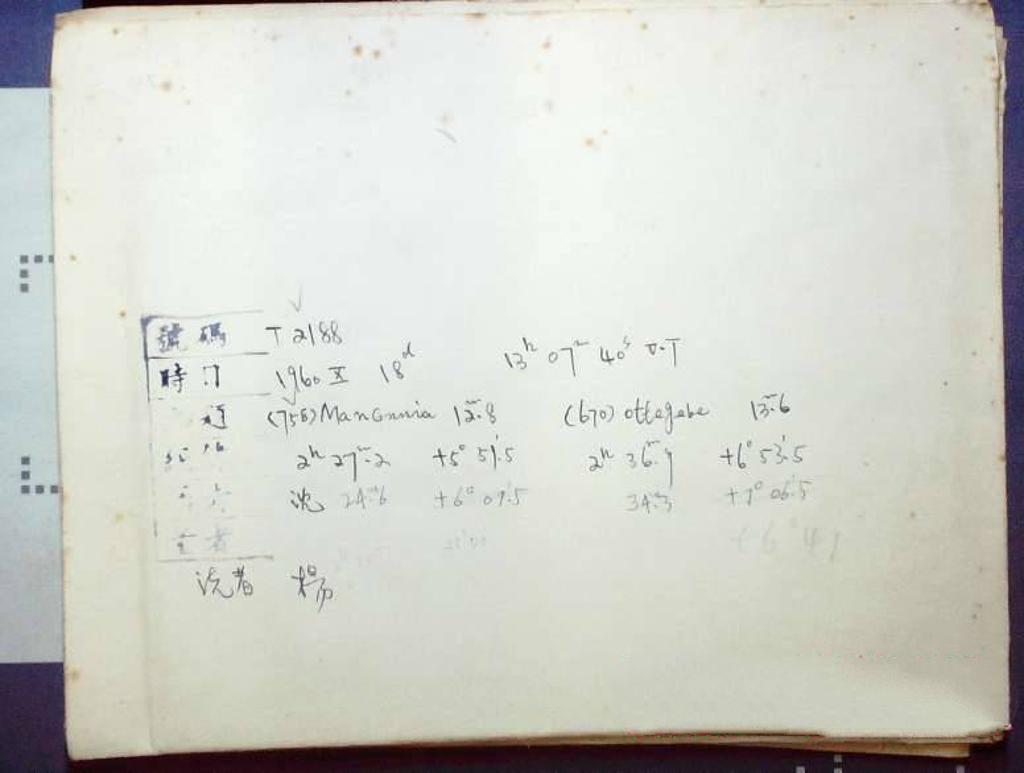 號碼 T 2188
時日 1960 X 18ᵈ 13ʰ 07ᵐ 40ˢ U.T
(758) Mancunia 12ᵐ.8 (670) ottegebe 13ᵐ.6
2ʰ 27ᵐ.2 +5° 51'.5 2ʰ 36ᵐ.9 +6° 53'.5
沈 24ᵐ.6 +6° 07'.5 34ᵐ.3 +7° 06'.5
者 +6° 41
读者 杨